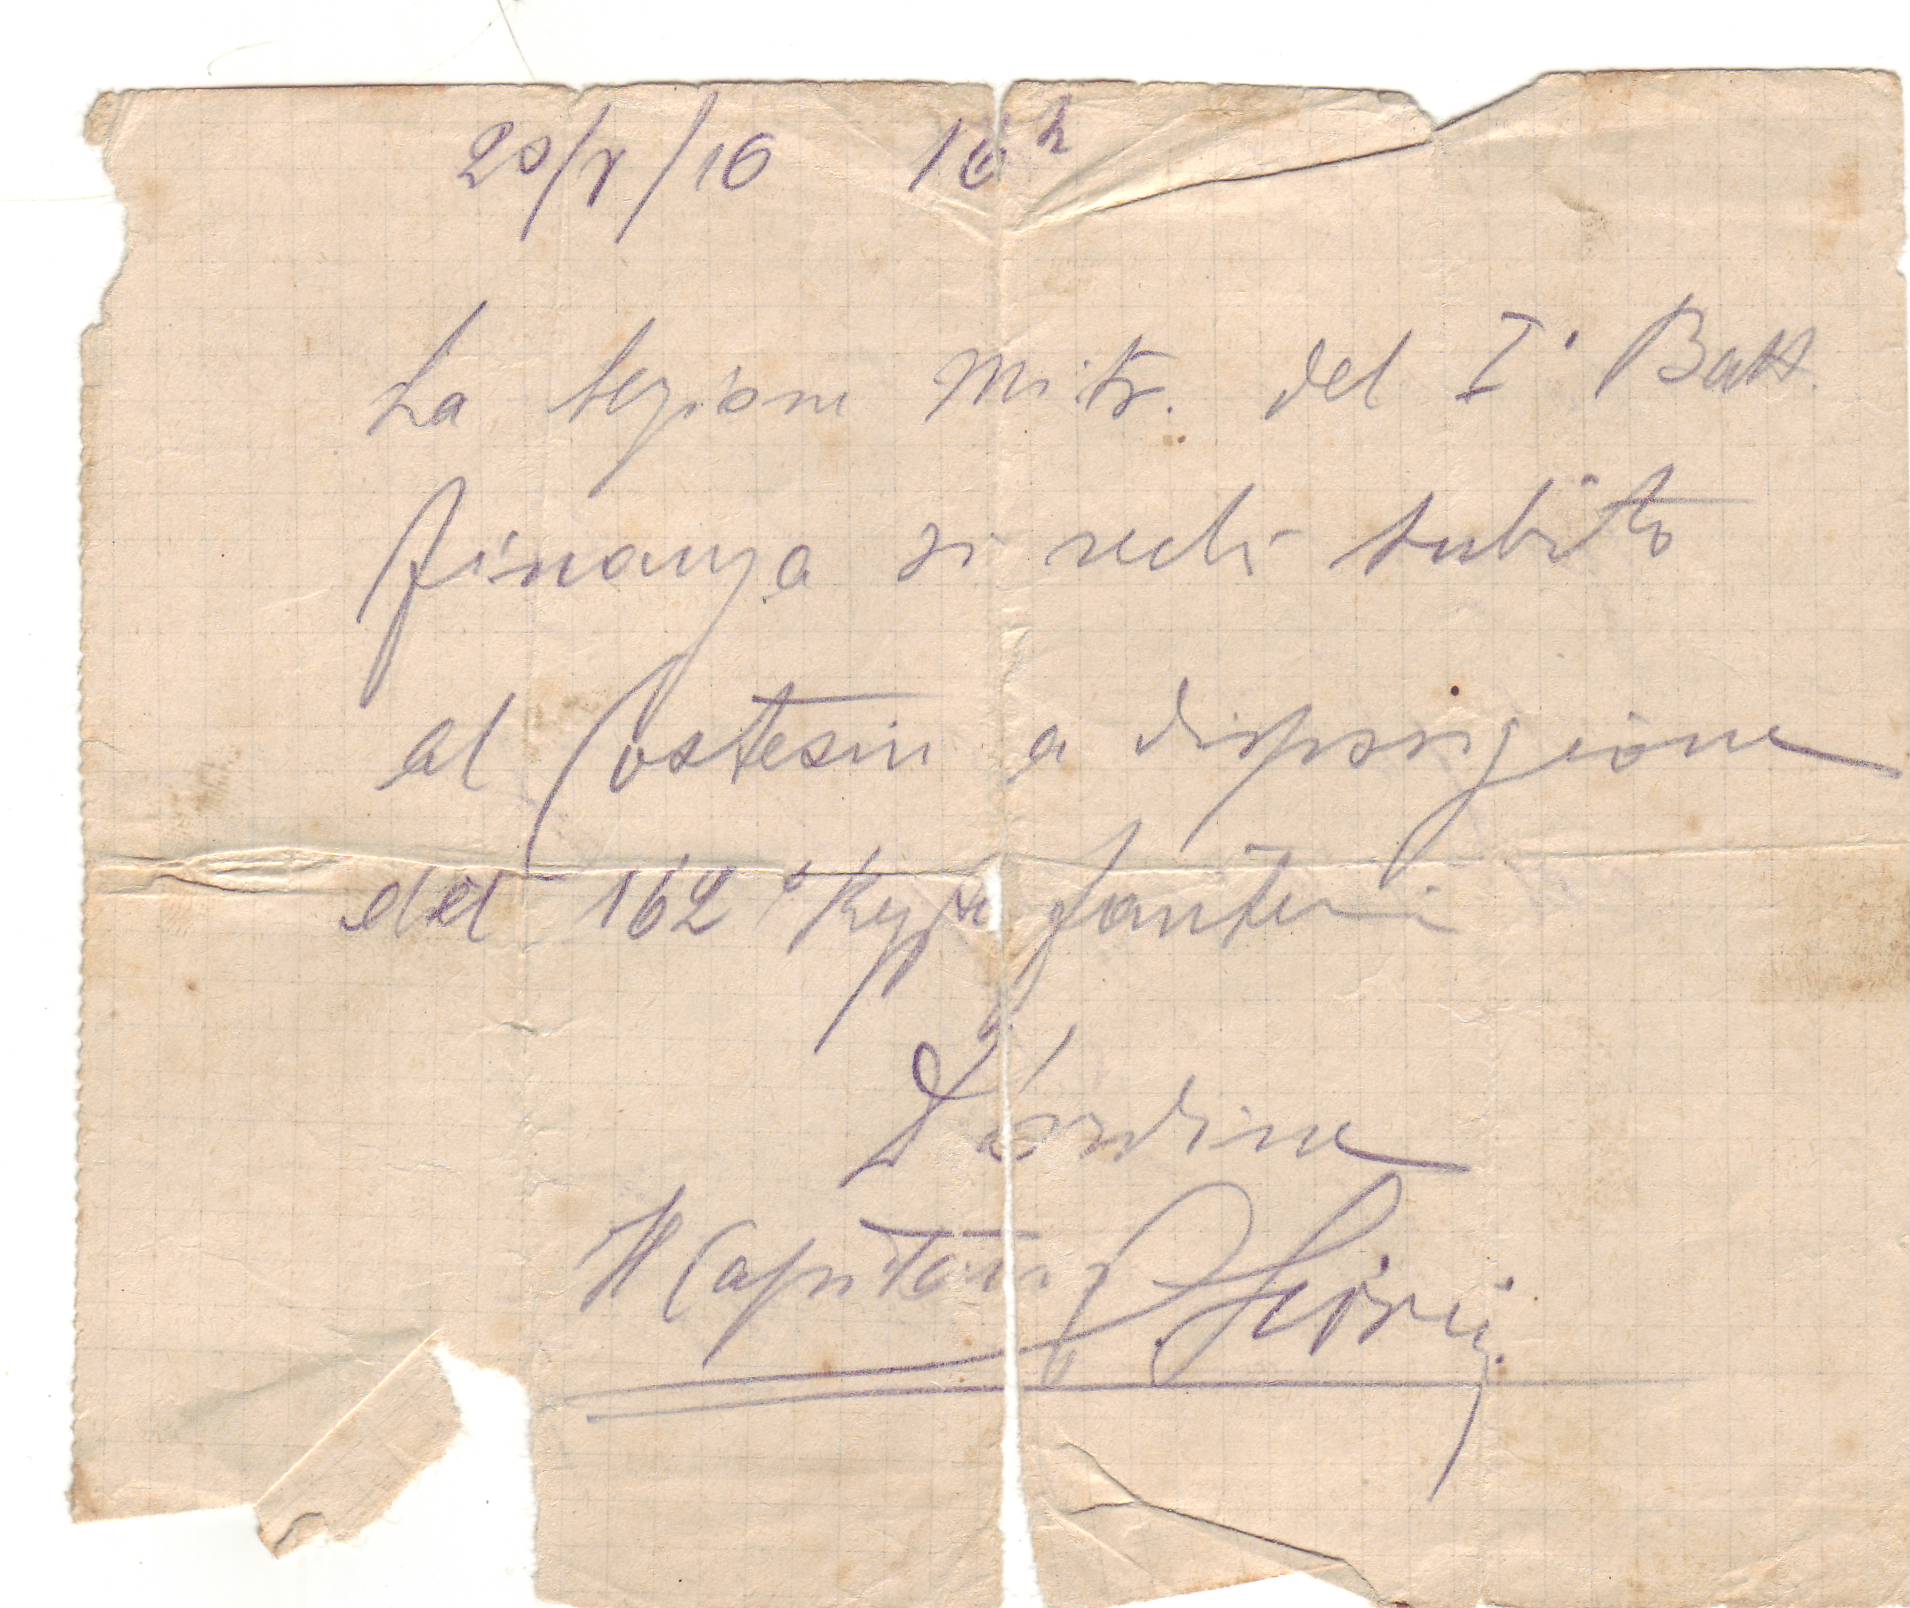 20/V/16 16 h
La sezione Mitr. del I° Batt.
finanza si rechi subito
al Costesin a disposizione
del 162° Regg. fanteria
D'ordine
Il Capitano